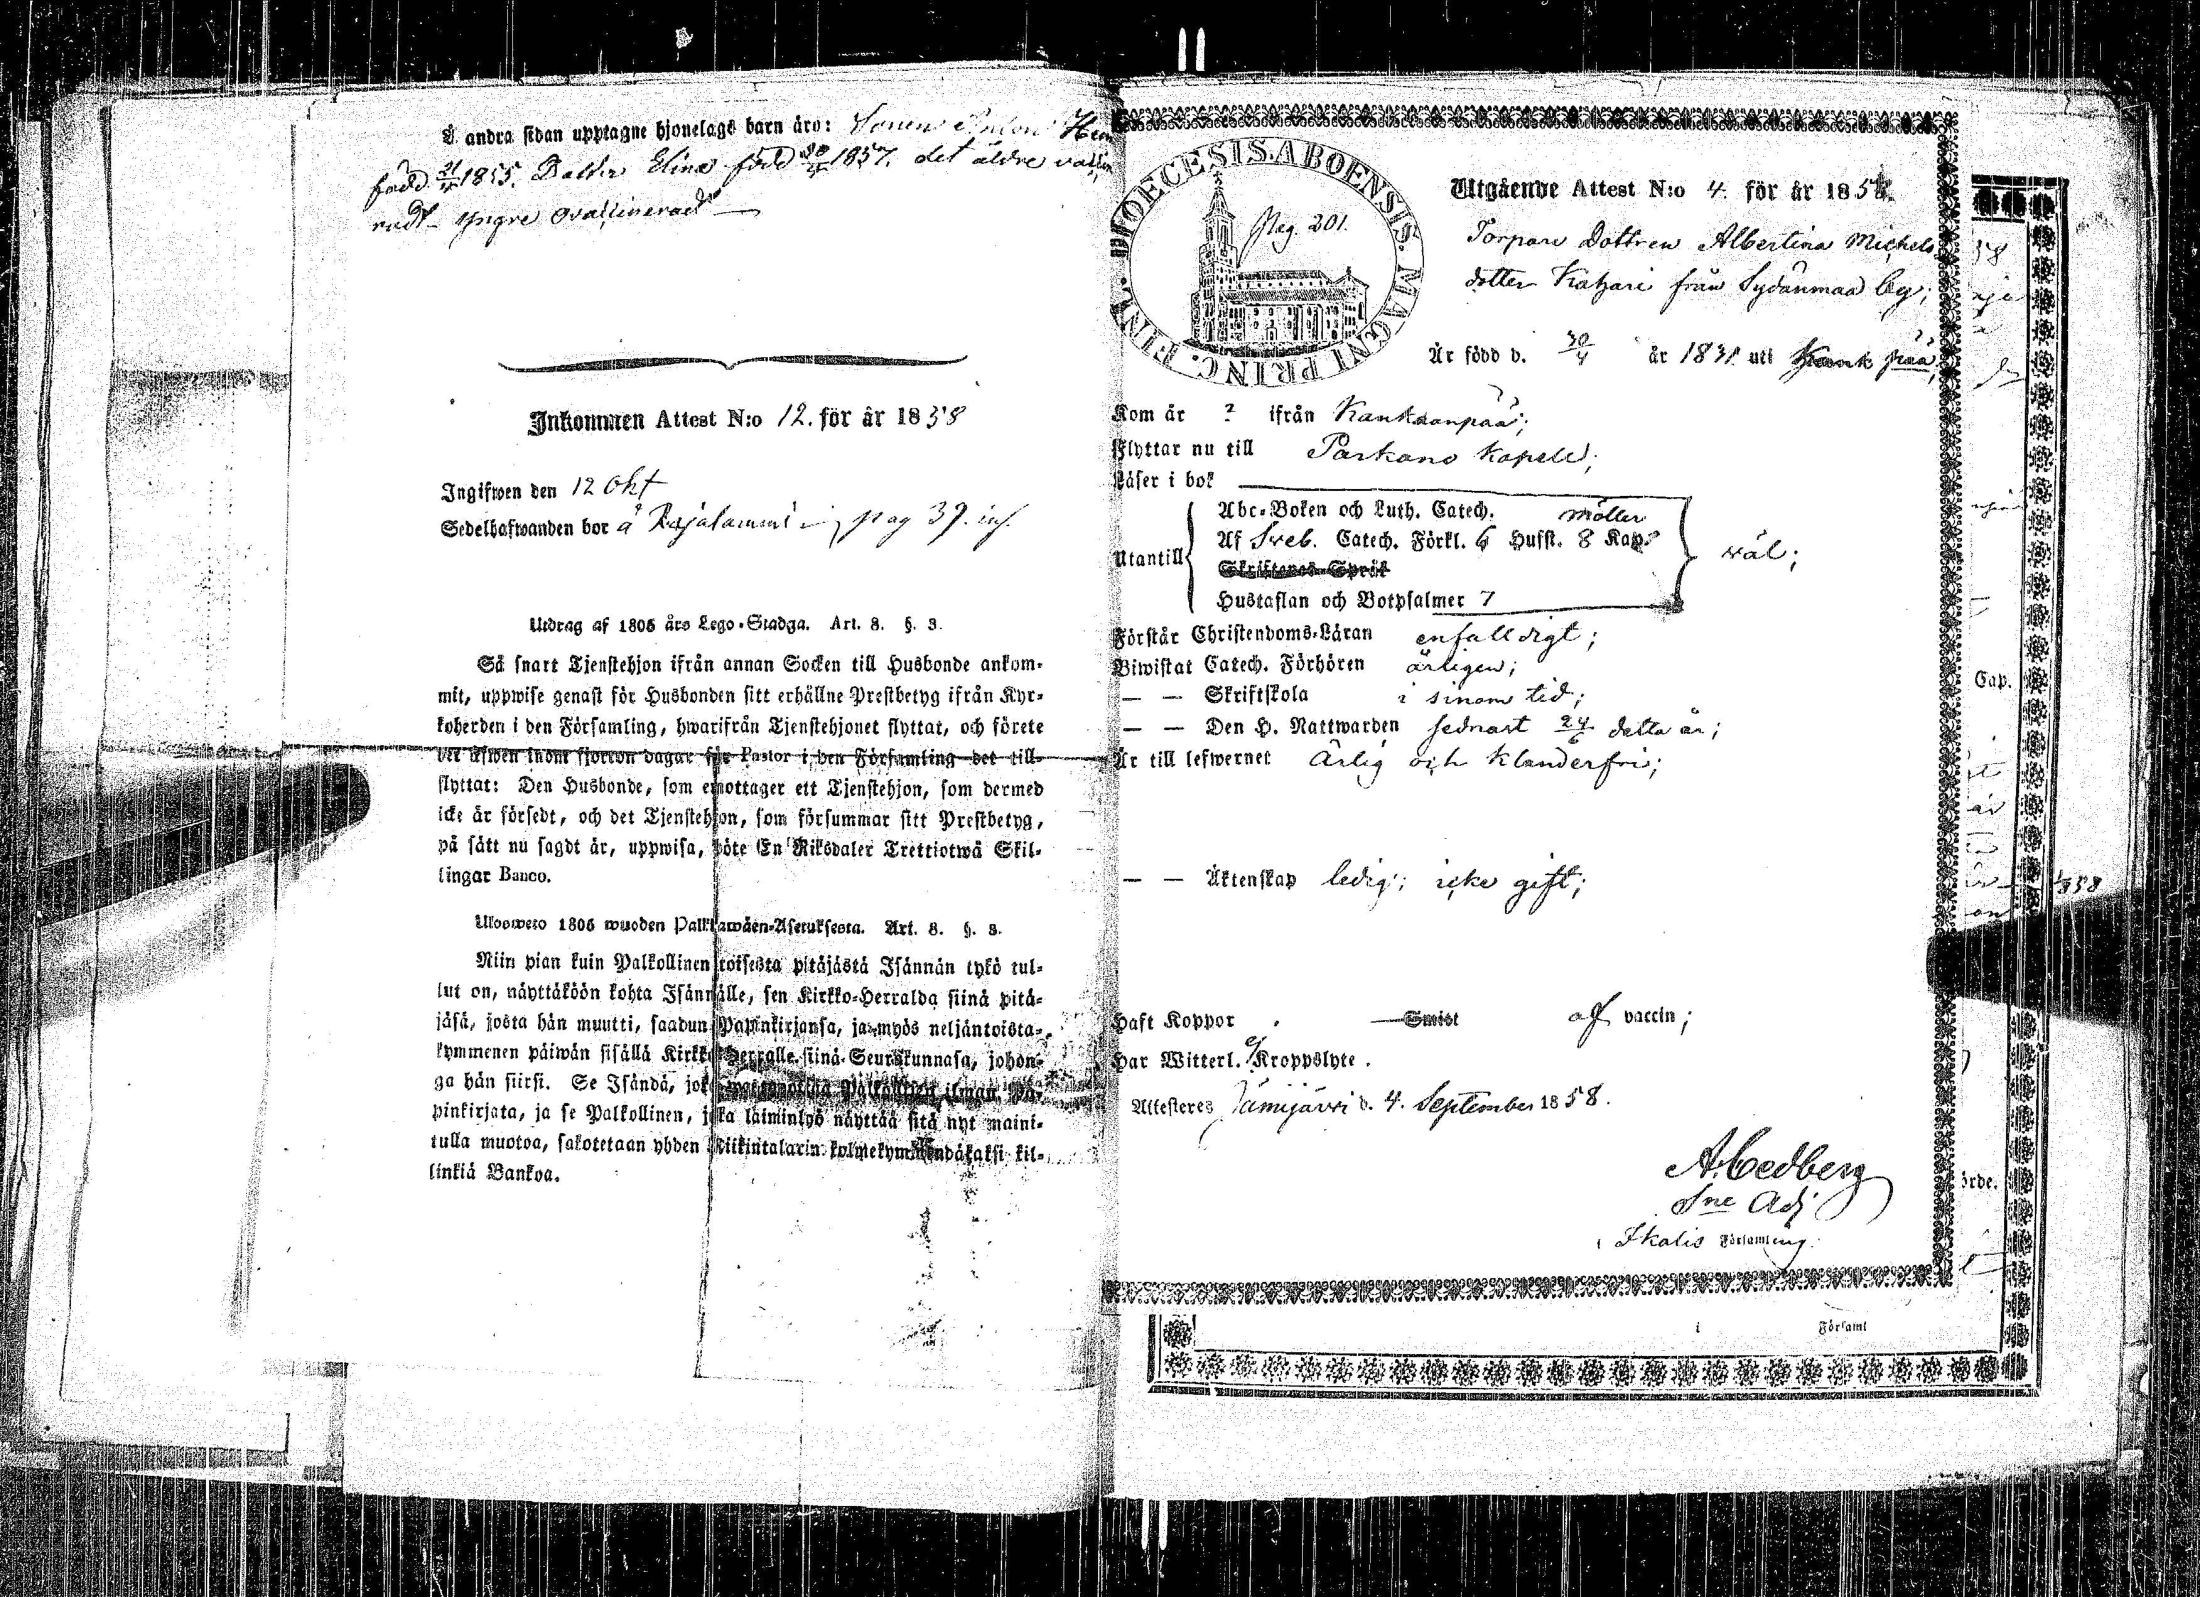 Å andra sidan upptagne hjonelags barn äro: Sonen Anton
född 21/ 1855. Dotter Elina född 1857. det äldre vaccine
radt yngre ovaccineradt
Inkommen Attest N:o 12. för år 1858
Ingifwen den 12 Okt
Sedelhafwanden bor å Rajalammi pag 39. inf.
Utdrag af 1805 års Lego-Stadga. Art. 8. §. 3.
Så snart Tjenstehjon ifrån annan Socken till Husbonde ankom-
mit, uppwise genast för Husbonden sitt erhållne Prestbetyg ifrån Kyr-
koherden i den Församling, hwarifrån Tjenstehjonet flyttat, och förete
det äfwen inom fjorton dagar för Pastor i den Församling det till-
flyttat: Den Husbonde, som emottager ett Tjenstehjon, som dermed
icke är försedt, och det Tjenstehjon, som försummar sitt Prestbetyg,
på sätt nu sagdt är, uppwisa, böte En Riksdaler Trettiotwå Skil-
lingar Banco.
Ulosweto 1805 wuoden Palkkawäen-Asetuksesta. Art. 8. §. 3.
Niin pian kuin Palkollinen toisesta pitäjästä Isännän tykö tul-
lut on, näyttäköön kohta Isännälle, sen Kirkko-Herralda siinä pitä-
jäsä, josta hän muutti, saadun Papinkirjansa, ja myös neljäntoista-
kymmenen päiwän sisällä Kirkko-Herralle siinä Seurakunnasa, johon-
ga hän siirsi. Se Isändä, joka Palkollisen ilman Pa-
pinkirjata, ja se Palkollinen, joka laiminlyö näyttää sitä nyt maini-
tulla muotoa, sakotetaan yhden Riikintalarin kolmekymmendäkaksi kil-
linkiä Bankoa.
DIOECESIS ABOENSIS. MAGNI PRINC. FINL.
Pag. 201.
Utgående Attest N:o 4. för år 1858.
Torpare Dottren Albertina Michels
dotter Katzari från Sydänmaa by;
Är född d. 30/4 år 1831 uti Kankpää;
Kom år ? ifrån Kankaanpää;
Flyttar nu till Parkano Kapell;
Läser i bok
Utantill
Abc-Boken och Luth. Catech. Möller
Af Sveb. Catech. Förkl. 6 Hufst. 8 Kap.
Skriftenes Språk
Hustaflan och Botpsalmer 7
väl;
Förstår Christendoms-Läran enfalldigt;
Biwistat Catech. Förhören årligen;
— — Skriftskola i sinom tid;
— — Den H. Nattwarden sednast 24/6 detta år;
Är till lefwernet Ärlig och klanderfri;
— — Äktenskap ledig; icke gift;
Haft Koppor Smitt af vaccin;
Har Witterl. ej Kroppslyte.
Attesteres Jämijärvi d. 4. September 1858.
A. Cedberg
Sne Adj
i Ikalis Församling.
Cap.
i Församl